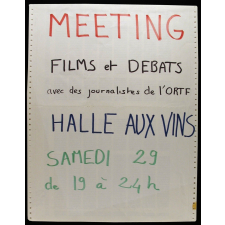 MEETING
FILMS et DEBATS
avec des journalistes de l'ORTF
HALLE AUX VINS
SAMEDI 29
de 19 à 24h